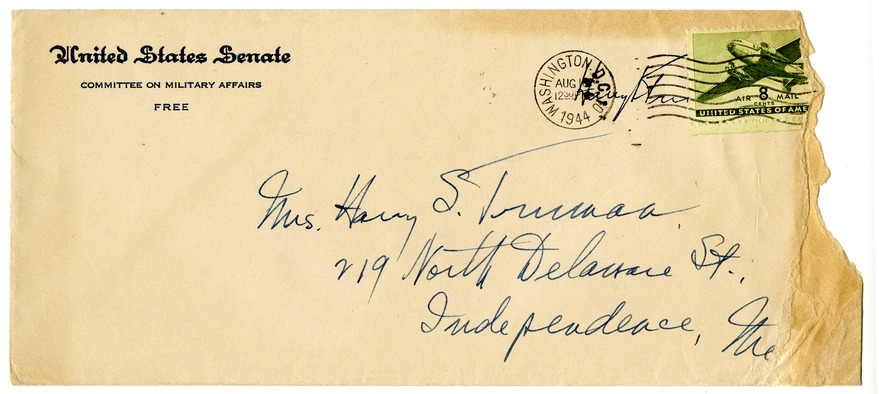 United States Senate
COMMITTEE ON MILITARY AFFAIRS
FREE
WASHINGTON, D.C.
AUG
1944
Harry
AIR 8 MAIL
CENTS
UNITED STATES OF AME
Mrs. Harry S. Truman
219 North Delaware St.,
Independence, Mo